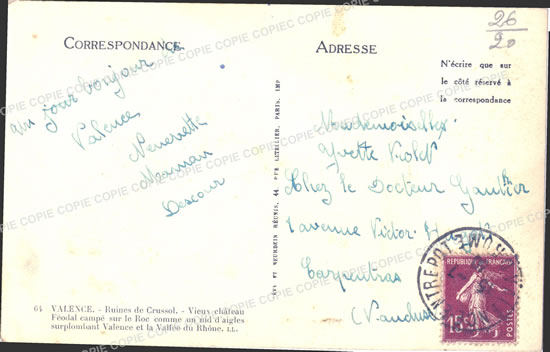 CORRESPONDANCE
un jour bonjour de
Valence
Maman
ADRESSE
26
20
N'écrire que sur
le côté réservé à
la correspondance
Mademoiselle
Yvette Violet
Chez le Docteur Gautier
1 avenue Victor Hugo
Carpentras
(Vaucluse)
RÉUNIS, 44, RUE LETELLIER, PARIS. IMP
ENTREPOT
REPUBLIQUE FRANÇAISE
15c
64 VALENCE. - Ruines de Crussol. - Vieux château
Féodal campé sur le Roc comme un nid d'aigles
surplombant Valence et la Vallée du Rhône. LL.
COPIE COPIE COPIE COPIE COPIE COPIE